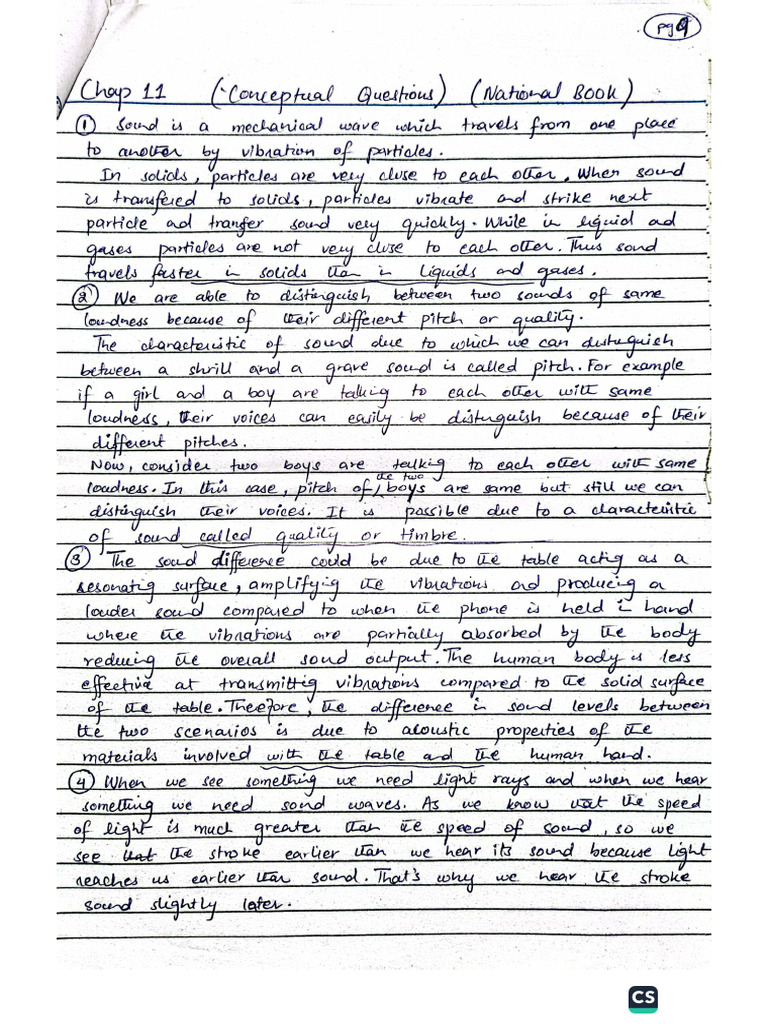 pg 9
Chap 11 (Conceptual Questions) (National Book)
① Sound is a mechanical wave which travels from one place
to another by vibration of particles.
In solids, particles are very close to each other. When sound
is transfered to solids, particles vibrate and strike next
particle and transfer sound very quickly. While in liquid and
gases particles are not very close to each other. Thus sound
travels faster in solids than in liquids and gases.
② We are able to distinguish between two sounds of same
loudness because of their different pitch or quality.
The characteristic of sound due to which we can distinguish
between a shrill and a grave sound is called pitch. For example
if a girl and a boy are talking to each other with same
loudness, their voices can easily be distinguish because of their
different pitches.
Now, consider two boys are talking to each other with same
loudness. In this case, pitch of the two boys are same but still we can
distinguish their voices. It is possible due to a characteristic
of sound called quality or timbre.
③ The sound difference could be due to the table acting as a
resonating surface, amplifying the vibrations and producing a
louder sound compared to when the phone is held in hand
where the vibrations are partially absorbed by the body
reducing the overall sound output. The human body is less
effective at transmitting vibrations compared to the solid surface
of the table. Therefore, the difference in sound levels between
the two scenarios is due to acoustic properties of the
materials involved with the table and the human hand.
④ When we see something we need light rays and when we hear
something we need sound waves. As we know that the speed
of light is much greater than the speed of sound, so we
see that the stroke earlier than we hear its sound because light
reaches us earlier than sound. That's why we hear the stroke
sound slightly later.
CS